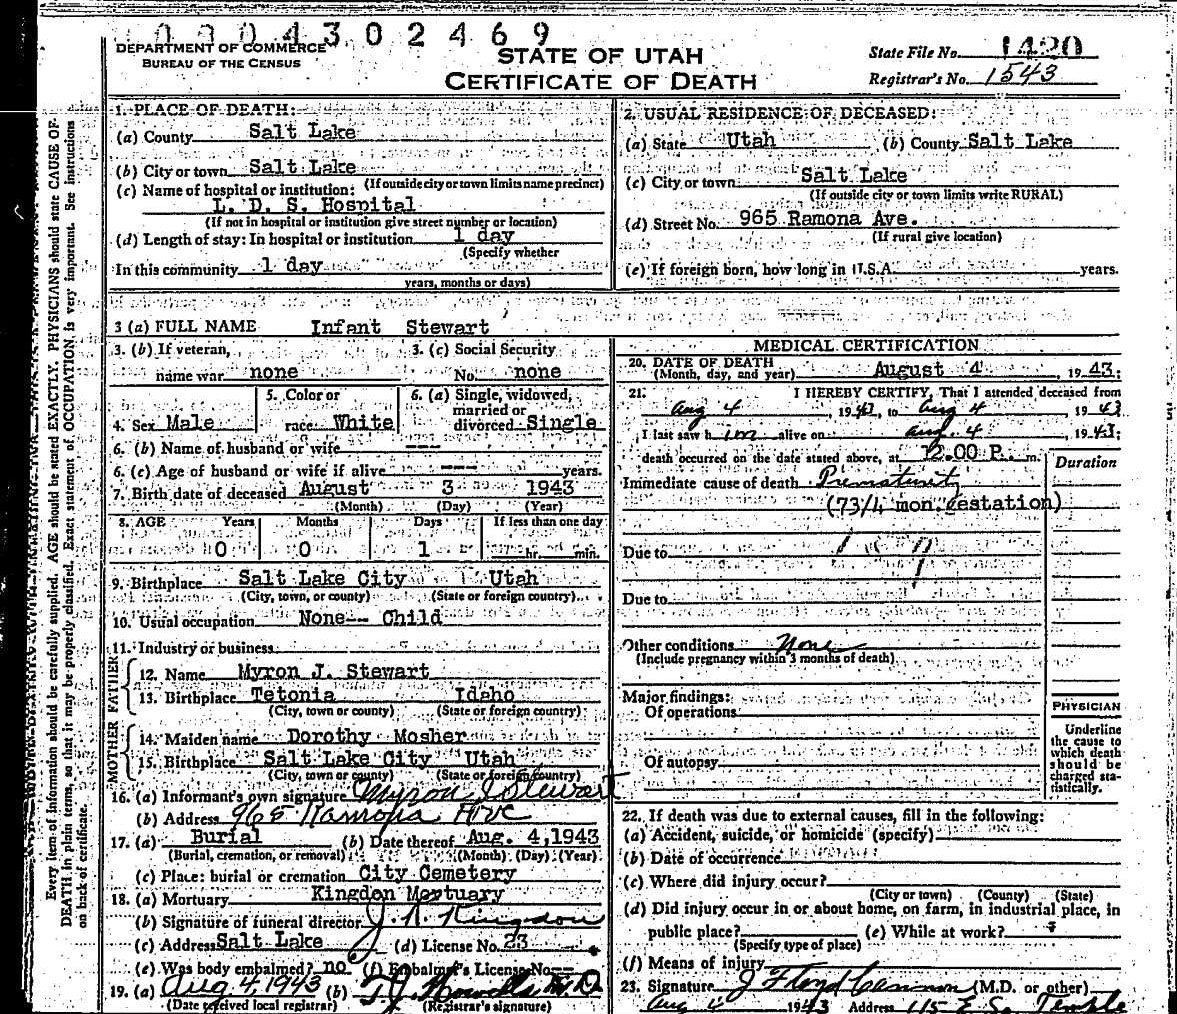 0 3 0 4 3 0 2 4 6 9
DEPARTMENT OF COMMERCE
BUREAU OF THE CENSUS
STATE OF UTAH
CERTIFICATE OF DEATH
State File No. 1420
Registrar's No. 1543
Every item of information should be carefully supplied. AGE should be stated EXACTLY. PHYSICIANS should state CAUSE OF
DEATH in plain terms, so that it may be properly classified. Exact statement of OCCUPATION, is very important. See Instructions
on back of certificate.
1. PLACE OF DEATH:
(a) County Salt Lake
(b) City or town Salt Lake
(If outside city or town limits name precinct)
(c) Name of hospital or institution:
L. D. S. Hospital
(If not in hospital or institution give street number or location)
(d) Length of stay: In hospital or institution 1 day
(Specify whether
In this community 1 day
years, months or days)
2. USUAL RESIDENCE OF DECEASED:
(a) State Utah (b) County Salt Lake
(c) City or town Salt Lake
(If outside city or town limits write RURAL)
(d) Street No. 965 Ramona Ave.
(If rural give location)
(e) If foreign born, how long in U.S.A. years.
3 (a) FULL NAME Infant Stewart
3. (b) If veteran, 3. (c) Social Security
name war none No. none
4. Sex Male 5. Color or race White 6. (a) Single, widowed, married or divorced Single
6. (b) Name of husband or wife ---
6. (c) Age of husband or wife if alive --- years.
7. Birth date of deceased August 3 1943
(Month) (Day) (Year)
8. AGE Years Months Days If less than one day
0 0 1 hr. min.
9. Birthplace Salt Lake City Utah
(City, town, or county) (State or foreign country)
10. Usual occupation None-- Child
11. Industry or business
FATHER
12. Name Myron J. Stewart
13. Birthplace Tetonia Idaho
(City, town or county) (State or foreign country)
MOTHER
14. Maiden name Dorothy Mosher
15. Birthplace Salt Lake City Utah
(City, town or county) (State or foreign country)
16. (a) Informant's own signature Myron J Stewart
(b) Address 965 Ramona Ave
17. (a) Burial (b) Date thereof Aug. 4, 1943
(Burial, cremation, or removal) (Month) (Day) (Year)
(c) Place: burial or cremation City Cemetery
18. (a) Mortuary Kingdon Mortuary
(b) Signature of funeral director J. R. Kingdon
(c) Address Salt Lake (d) License No. 23
(e) Was body embalmed? no (f) Embalmer's License No. --
19. (a) Aug 4, 1943 (b) M.D.
(Date received local registrar) (Registrar's signature)
MEDICAL CERTIFICATION
20. DATE OF DEATH August 4, 1943;
(Month, day, and year)
21. I HEREBY CERTIFY, That I attended deceased from
Aug 4, 1943, to Aug 4, 1943
I last saw h im alive on Aug. 4, 1943;
death occurred on the date stated above, at 12.00 P. m.
Duration
Immediate cause of death Prematurity
(7 3/4 mon. Gestation)
Due to
Due to
Other conditions None
(Include pregnancy within 3 months of death)
Major findings:
Of operations
Of autopsy
PHYSICIAN
Underline
the cause to
which death
should be
charged sta-
tistically.
22. If death was due to external causes, fill in the following:
(a) Accident, suicide, or homicide (specify)
(b) Date of occurrence
(c) Where did injury occur?
(City or town) (County) (State)
(d) Did injury occur in or about home, on farm, in industrial place, in
public place? (e) While at work?
(Specify type of place)
(f) Means of injury
23. Signature J Floyd Cannon (M.D. or other)
Aug 4 1943 Address 115 E So. Temple